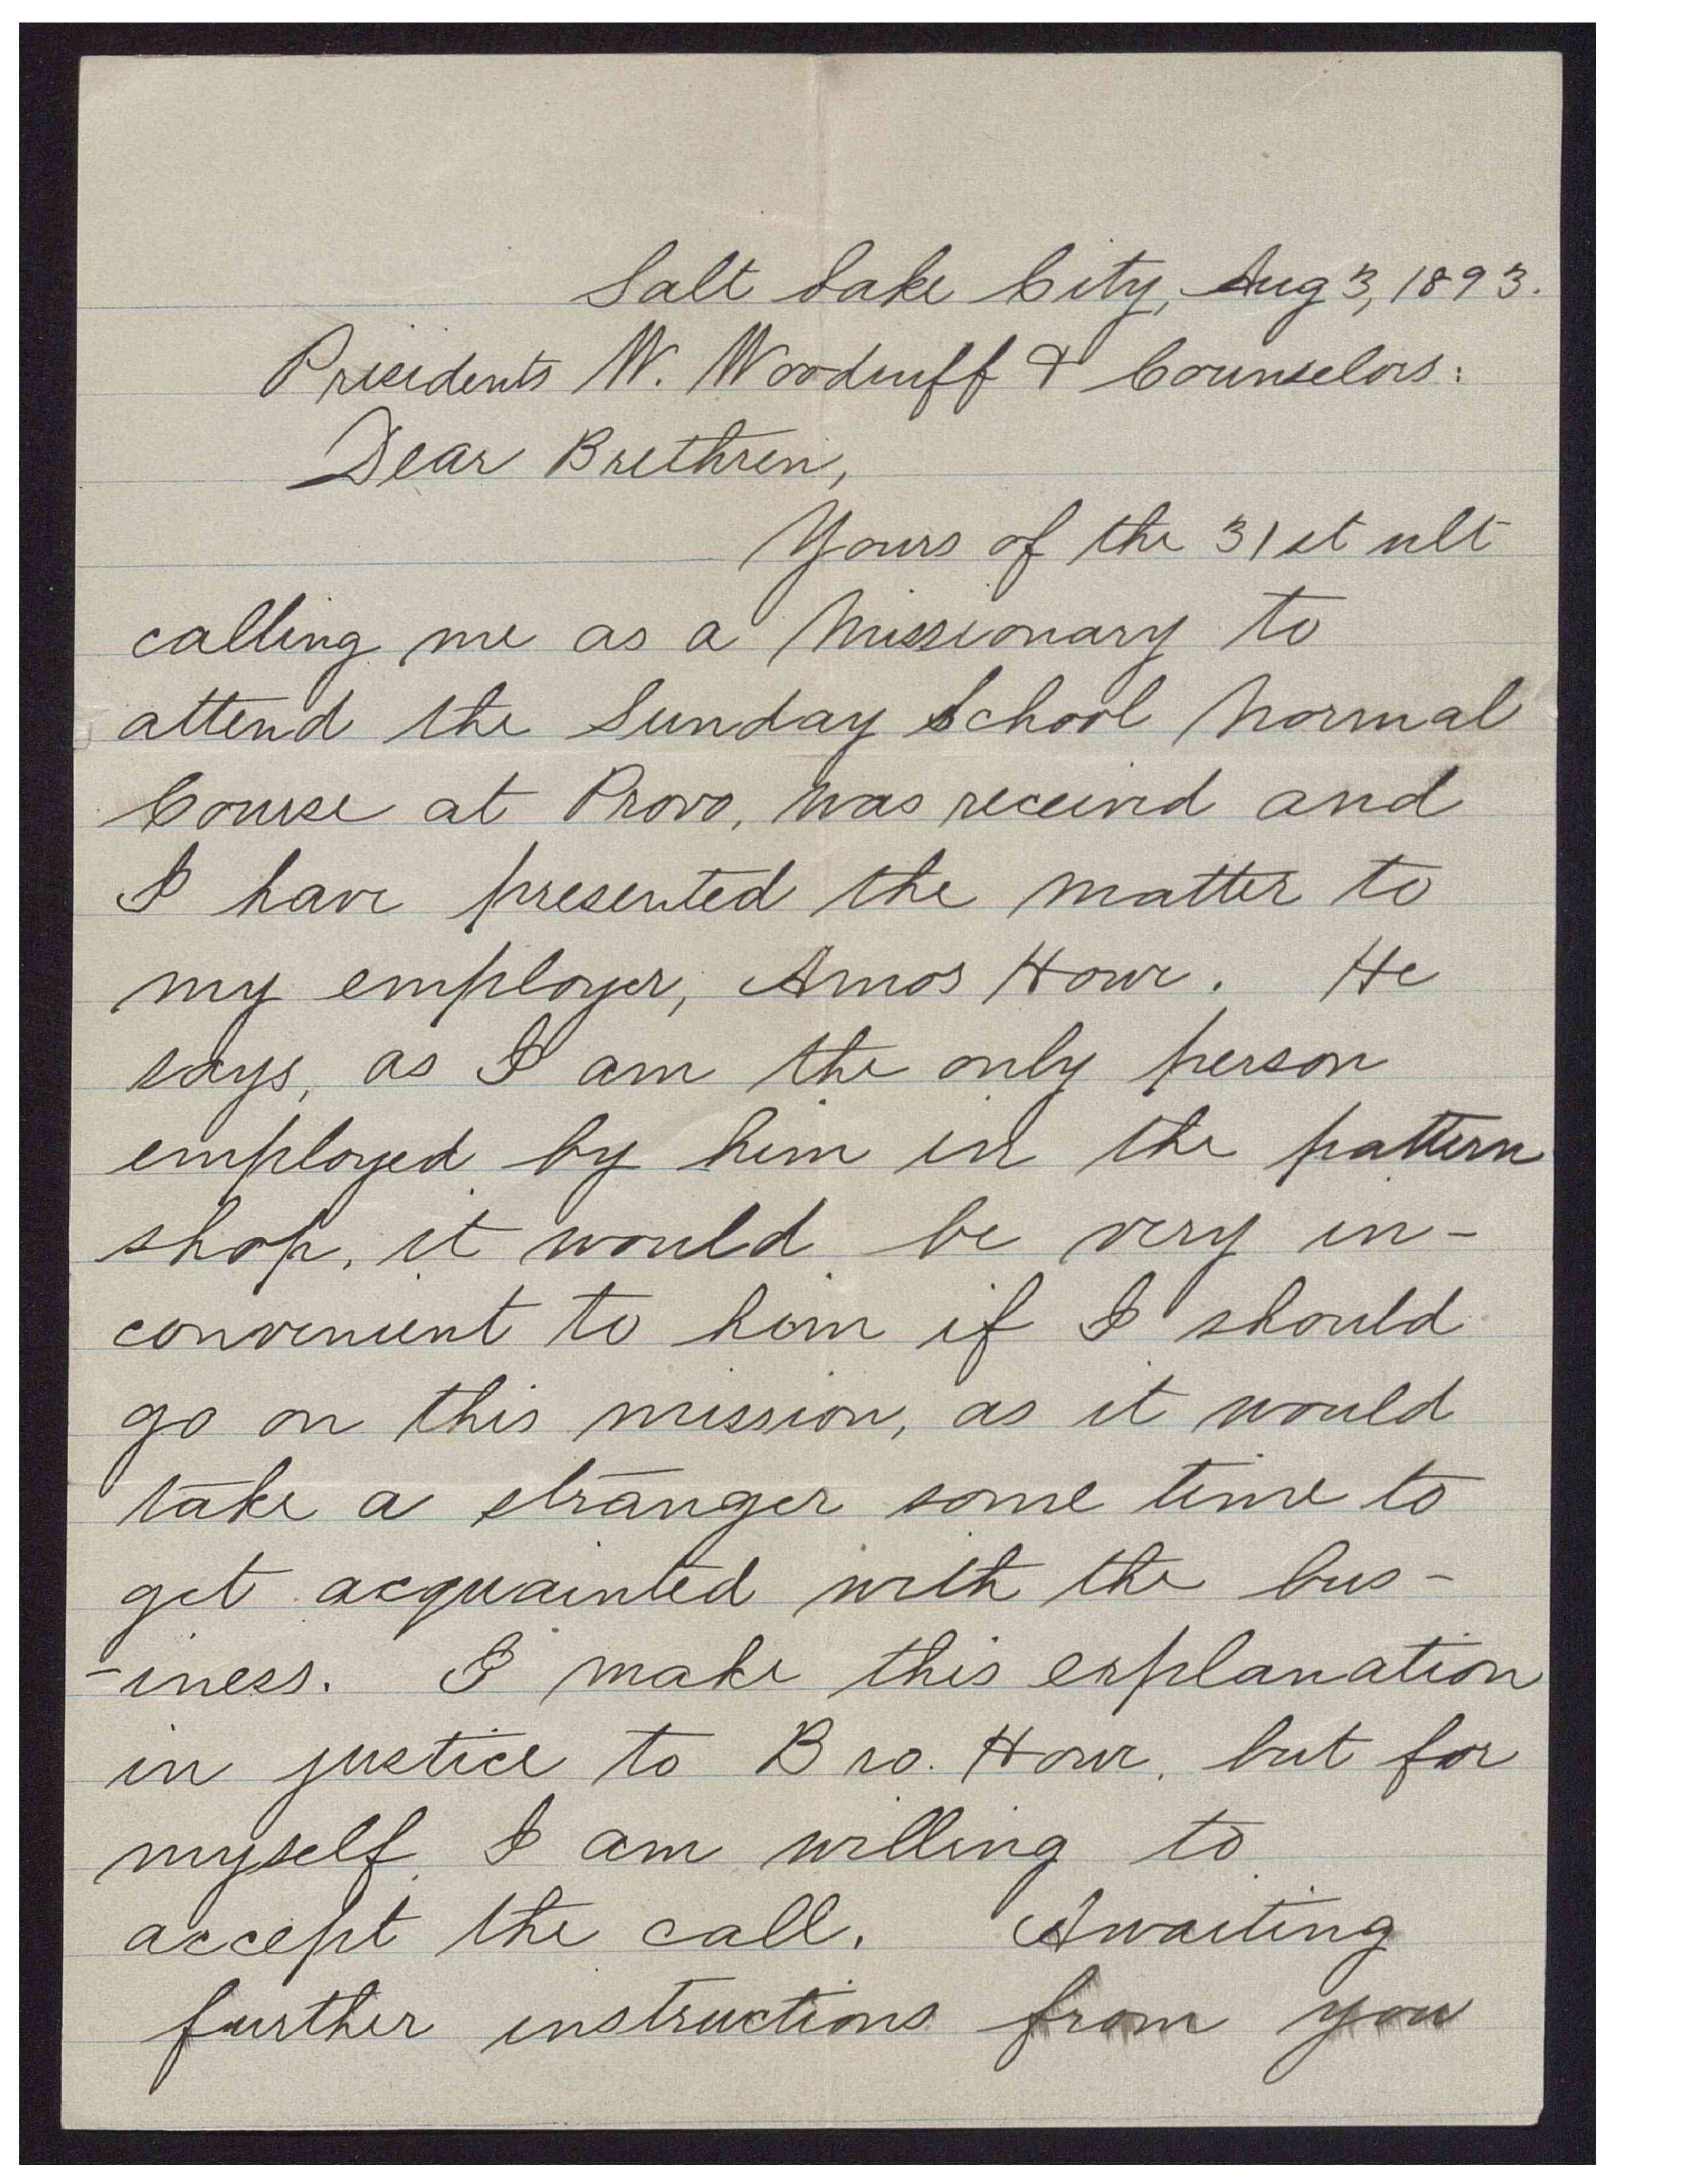 Salt Lake City, Aug 3, 1893.
Presidents W. Woodruff & Counselors:
Dear Brethren,
Yours of the 31st ult
calling me as a Missionary to
attend the Sunday School Normal
Course at Provo, was received and
I have presented the matter to
my employer, Amos Howe. He
says, as I am the only person
employed by him in the pattern
shop, it would be very in-
convenient to him if I should
go on this mission, as it would
take a stranger some time to
get acquainted with the bus-
-iness. I make this explanation
in justice to Bro. Howe, but for
myself I am willing to
accept the call. Awaiting
further instructions from you